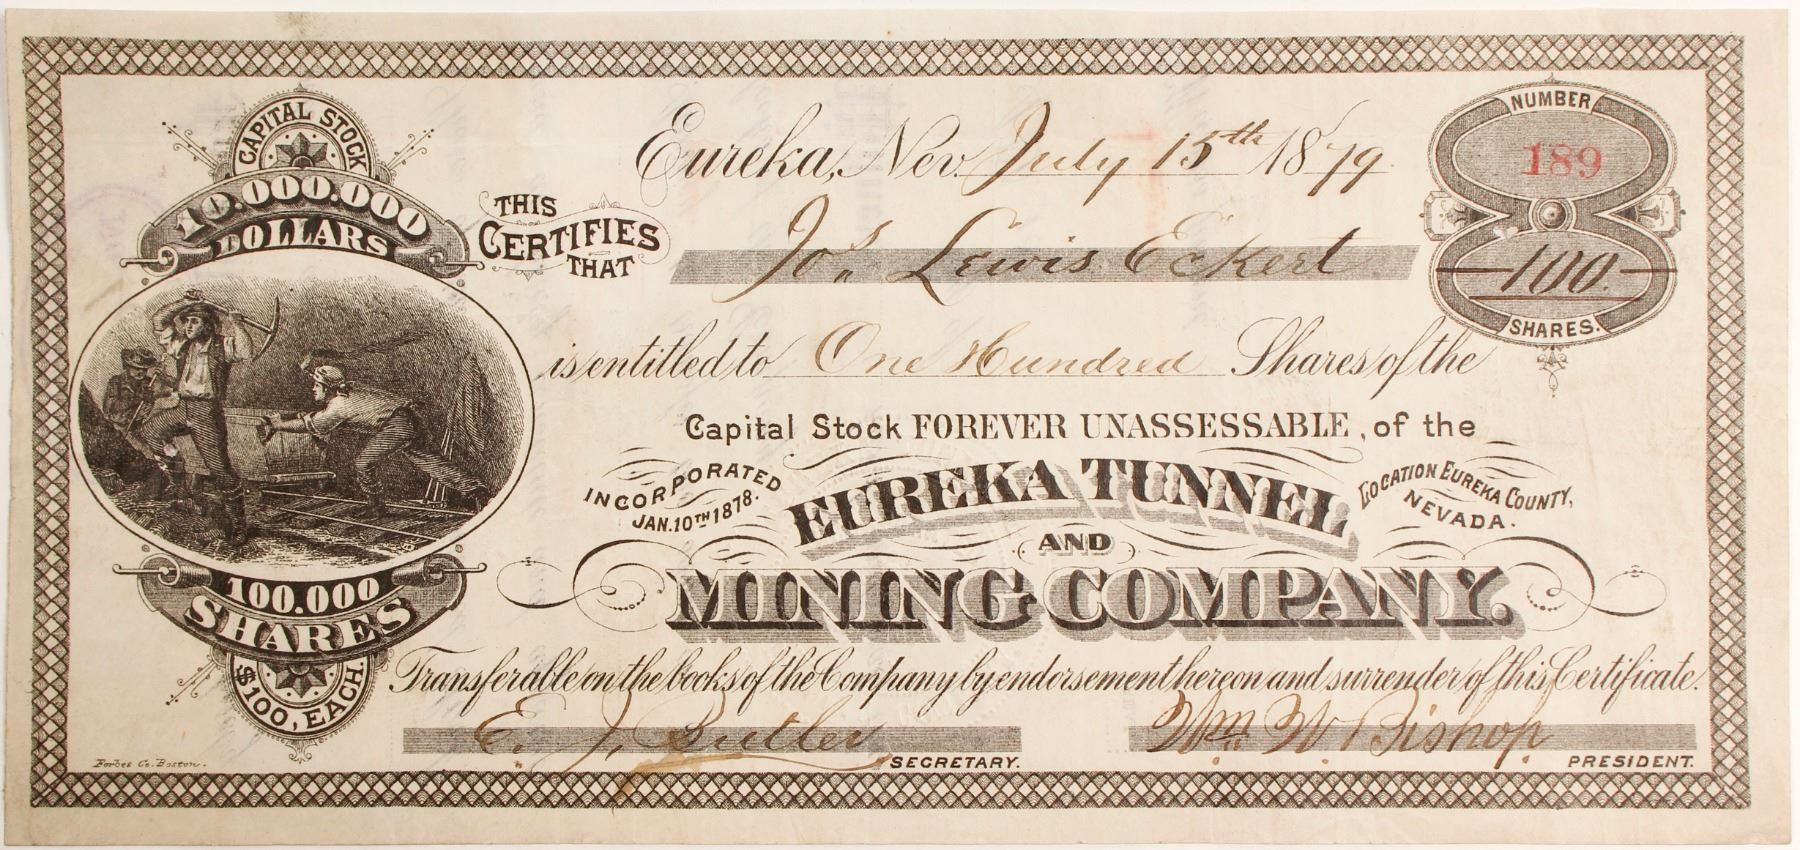 CAPITAL STOCK
10.000.000
DOLLARS
100.000
SHARES
$100, EACH.
Eureka, Nev. July 15th 1879
NUMBER
189
THIS
CERTIFIES
THAT
Jos. Lewis Eckert
100.
SHARES.
is entitled to One Hundred Shares of the
Capital Stock FOREVER UNASSESSABLE, of the
INCORPORATED
JAN. 10TH 1878.
EUREKA TUNNEL
LOCATION EUREKA COUNTY,
NEVADA.
AND
MINING COMPANY.
Transferable on the books of the Company by endorsement hereon and surrender of this Certificate.
E. J. Butler SECRETARY.
Wm W Bishop PRESIDENT.
Forbes Co. Boston.